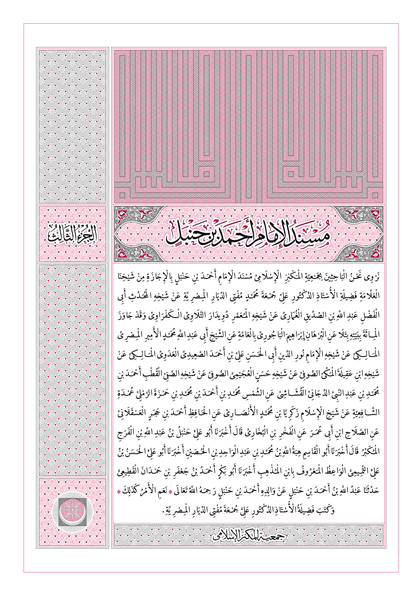 مسند الإمام أحمد بن حنبل
الجزء الثالث
نَرْوِى نَحْنُ الْبَاحِثِينَ بِجَمْعِيَّةِ الْمَكْنِزِ الإِسْلَامِىِّ مُسْنَدَ الإِمَامِ أَحْمَدَ بْنِ حَنْبَلٍ بِالإِجَازَةِ مِنْ شَيْخِنَا
الْعَلَّامَةِ فَضِيلَةِ الأُسْتَاذِ الدُّكْتُورِ عَلِىّ جُمْعَة مُحَمَّدٍ مُفْتِى الدِّيَارِ الْمِصْرِيَّةِ عَنْ شَيْخِهِ الْمُحَدِّثِ أَبِى
الْفَضْلِ عَبْدِ اللهِ بْنِ الصِّدِّيقِ الْغُمَارِىِّ عَنْ شَيْخِهِ الْمُعَمَّرِ دُوِيدَار التَّلَاوِى الْكَفْرَاوِى وَقَدْ جَاوَزَ
الْمِائَةَ بِيَقِينٍ عَنِ الْبُرْهَانِ إِبْرَاهِيمَ الْبَاجُورِىِّ بِالْعَامَّةِ عَنِ الشَّيْخِ أَبِى عَبْدِ اللهِ مُحَمَّدٍ الأَمِيرِ الْمِصْرِىِّ
الْمَالِكِىِّ عَنْ شَيْخِهِ الإِمَامِ نُورِ الدِّينِ أَبِى الْحَسَنِ عَلِىِّ بْنِ أَحْمَدَ الصَّعِيدِىِّ الْعَدَوِىِّ الْمَالِكِىِّ عَنْ
شَيْخِهِ ابْنِ عَقِيلَةَ الْمَكِّىِّ الصُّوفِىِّ عَنْ شَيْخِهِ حَسَنٍ الْعُجَيْمِىِّ الصُّوفِىِّ عَنْ شَيْخِهِ الصَّفِىِّ الْقُطْبِ أَحْمَدَ بْنِ
مُحَمَّدِ بْنِ عَبْدِ النَّبِىِّ الدَّجَانِىِّ الْقُشَاشِىِّ عَنِ الشَّمْسِ مُحَمَّدِ بْنِ أَحْمَدَ بْنِ مُحَمَّدِ بْنِ حَمْزَةَ الرَّمْلِىِّ عُمْدَةِ
الشَّافِعِيَّةِ عَنْ شَيْخِ الإِسْلَامِ زَكَرِيَّا بْنِ مُحَمَّدٍ الأَنْصَارِىِّ عَنِ الْحَافِظِ أَحْمَدَ بْنِ حَجَرٍ الْعَسْقَلَانِىِّ
عَنِ الصَّلَاحِ ابْنِ أَبِى عُمَرَ عَنِ الْفَخْرِ بْنِ الْبُخَارِىِّ قَالَ أَخْبَرَنَا أَبُو عَلِىٍّ حَنْبَلُ بْنُ عَبْدِ اللهِ بْنِ الْفَرَجِ
الْمُكَبِّرُ قَالَ أَخْبَرَنَا أَبُو الْقَاسِمِ هِبَةُ اللهِ بْنُ مُحَمَّدِ بْنِ عَبْدِ الْوَاحِدِ بْنِ الْحُصَيْنِ أَخْبَرَنَا أَبُو عَلِىٍّ الْحَسَنُ بْنُ
عَلِىٍّ التَّمِيمِىُّ الْوَاعِظُ الْمَعْرُوفُ بِابْنِ الْمُذْهِبِ أَخْبَرَنَا أَبُو بَكْرٍ أَحْمَدُ بْنُ جَعْفَرِ بْنِ حَمْدَانَ الْقَطِيعِىُّ
حَدَّثَنَا عَبْدُ اللهِ بْنُ أَحْمَدَ بْنِ حَنْبَلٍ عَنْ وَالِدِهِ أَحْمَدَ بْنِ حَنْبَلٍ رَحِمَهُ اللهُ تَعَالَى * نَعَمِ الأَمْرُ كَذَلِكَ *
وَكَتَبَ فَضِيلَةُ الأُسْتَاذِ الدُّكْتُورِ عَلِىّ جُمْعَة مُفْتِى الدِّيَارِ الْمِصْرِيَّةِ.
جمعية المكنز الإسلامى